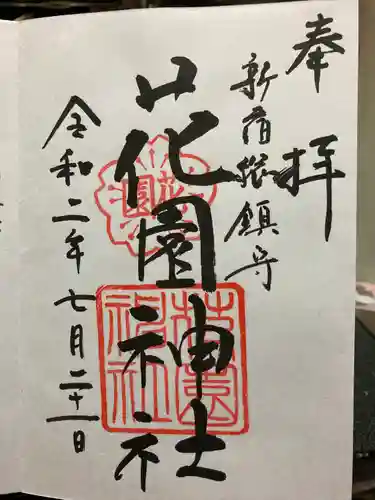 奉拝
新宿総鎮守
花園神社
令和二年七月二十一日
花園
花園神社